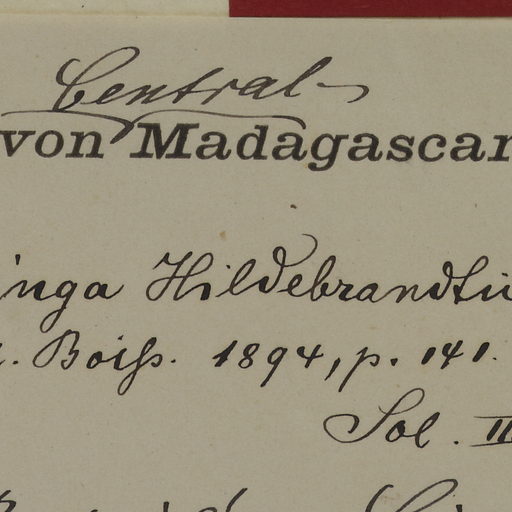 Central-
von Madagascar
inga Hildebrandtii
. Boiss. 1894, p. 141.
Sol. II